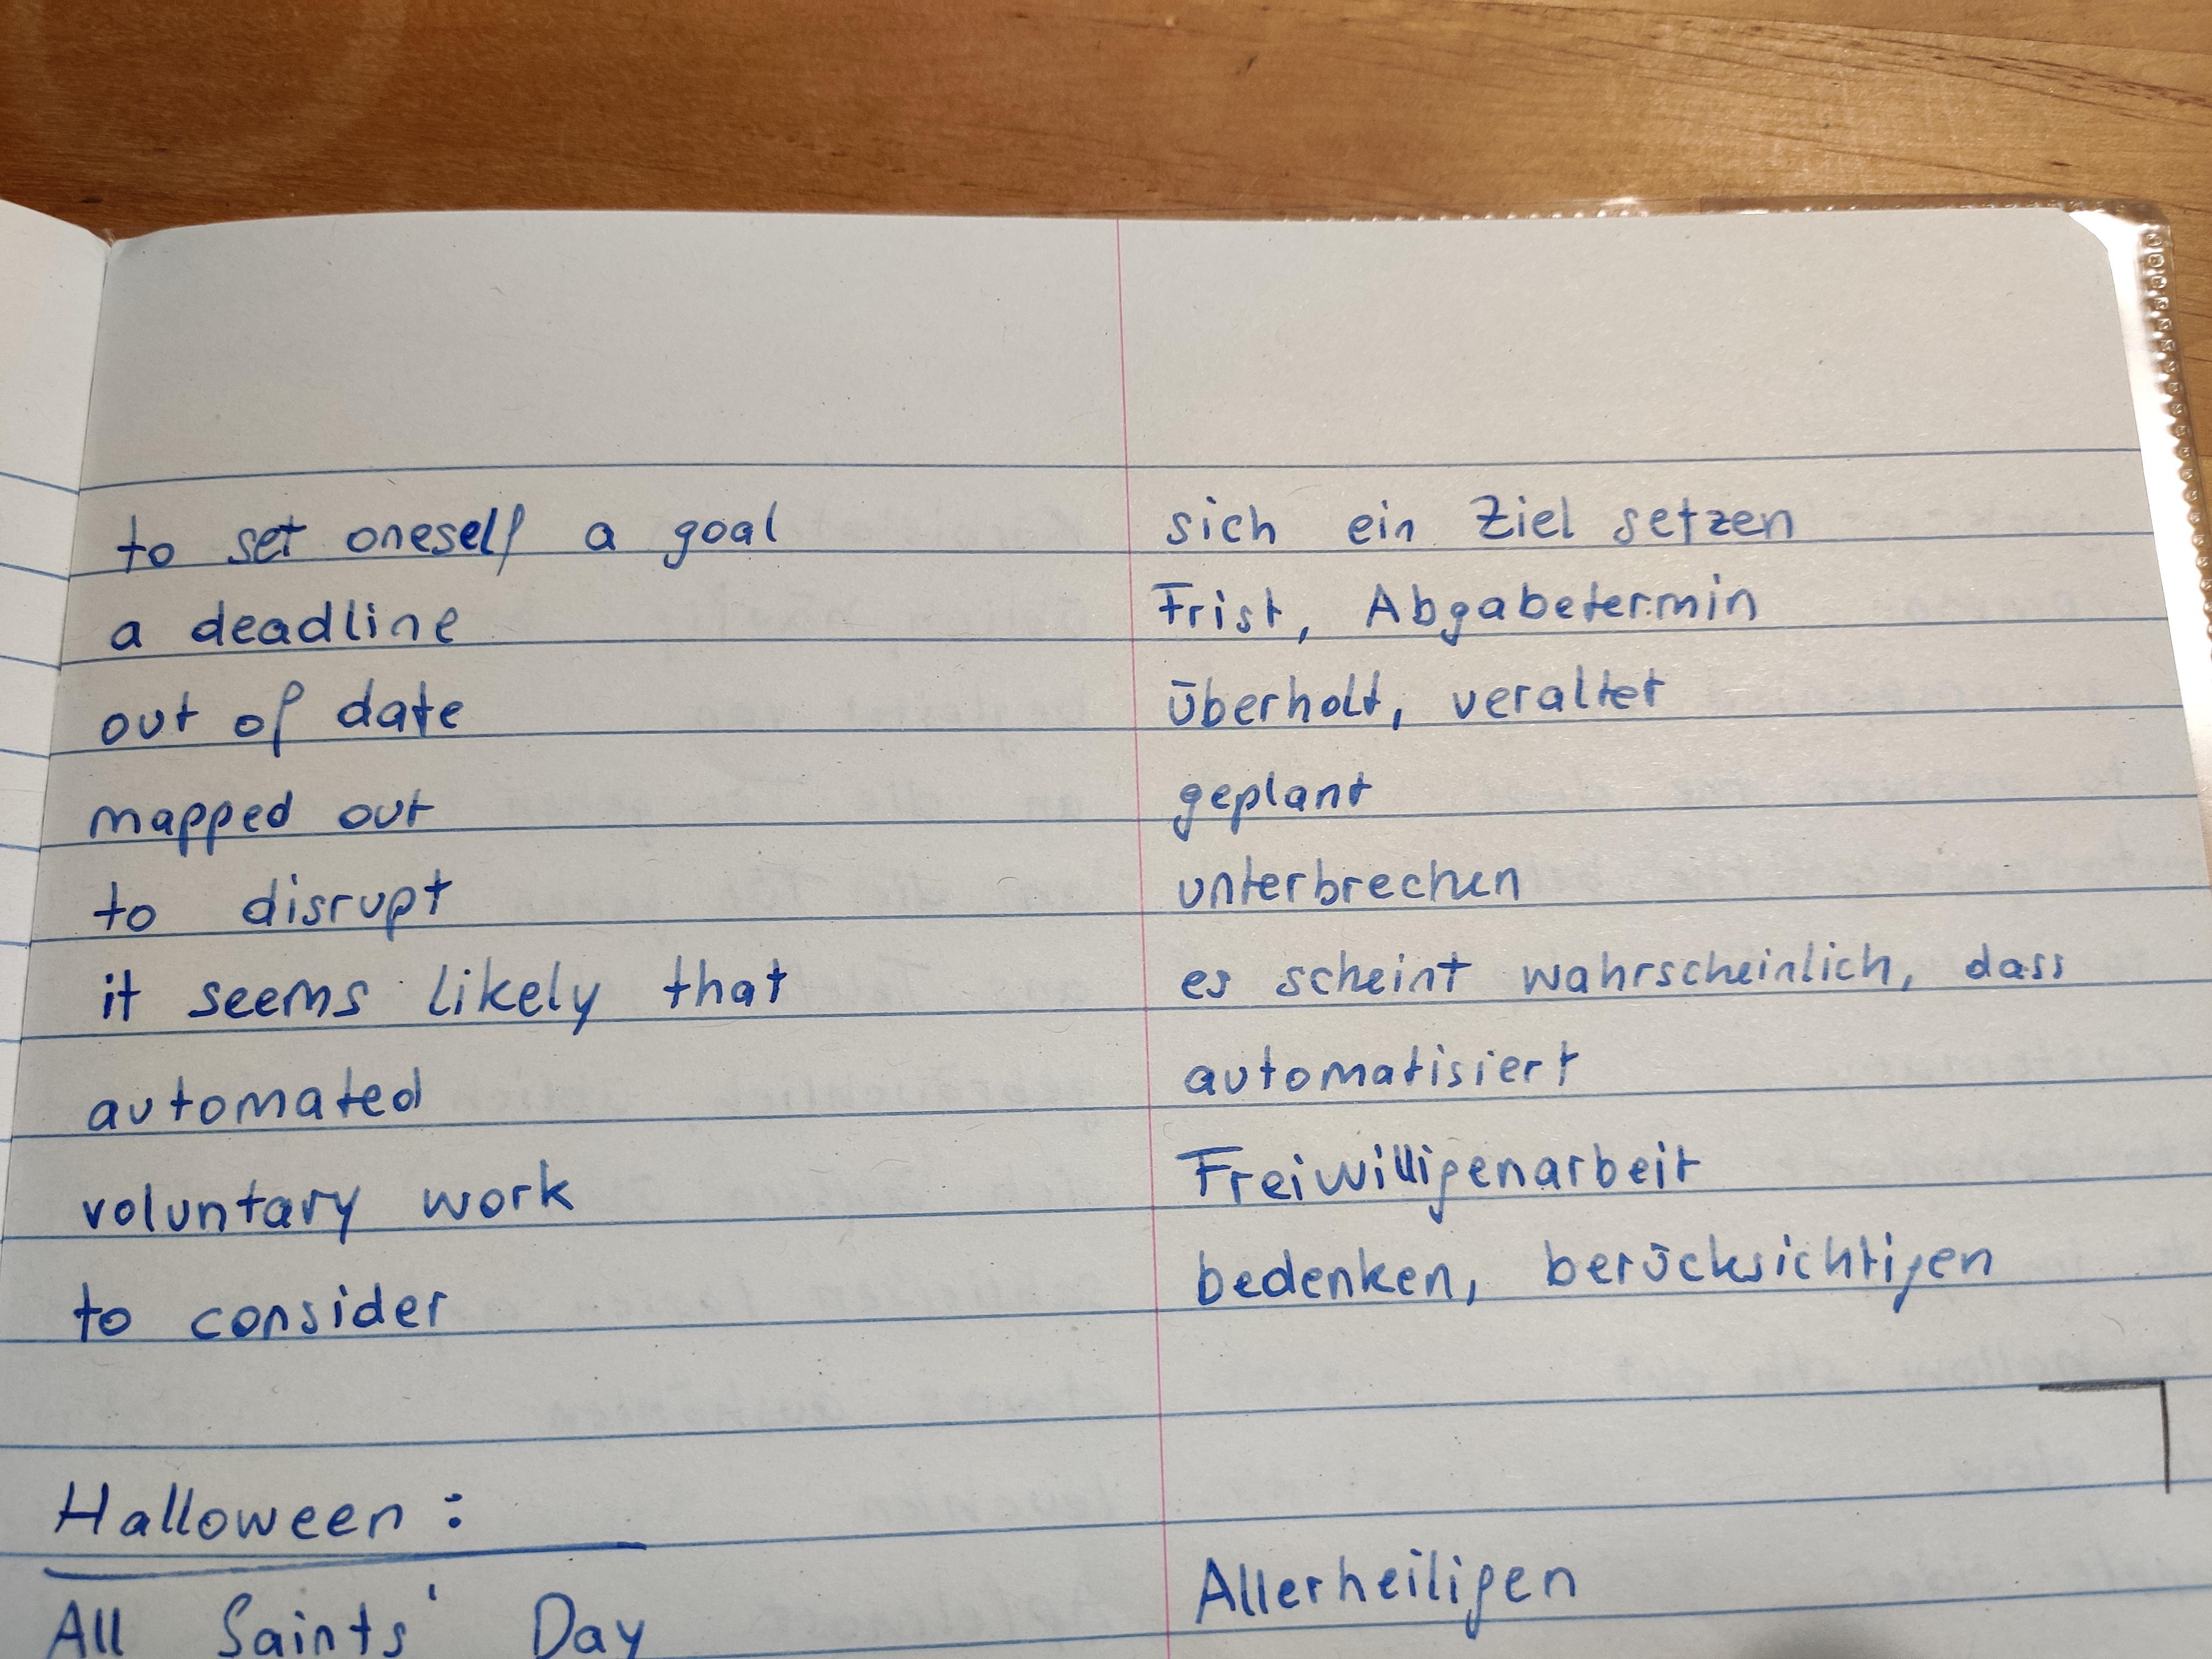 to set oneself a goal sich ein Ziel setzen
a deadline Frist, Abgabetermin
out of date überholt, veraltet
mapped out geplant
to disrupt unterbrechen
it seems likely that es scheint wahrscheinlich, dass
automated automatisiert
voluntary work Freiwilligenarbeit
to consider bedenken, berücksichtigen
Halloween:
All Saints' Day Allerheiligen